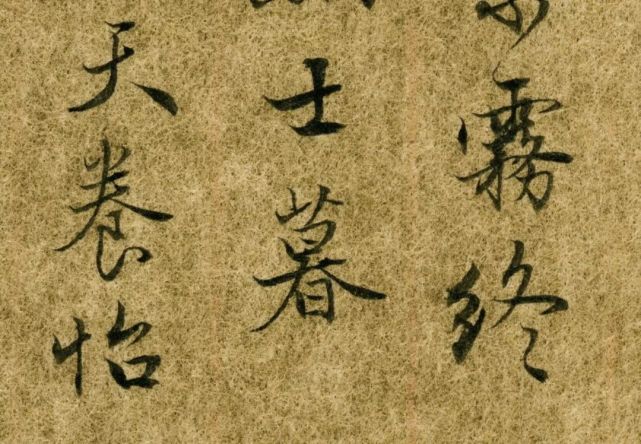 霧終
士暮
天養怡